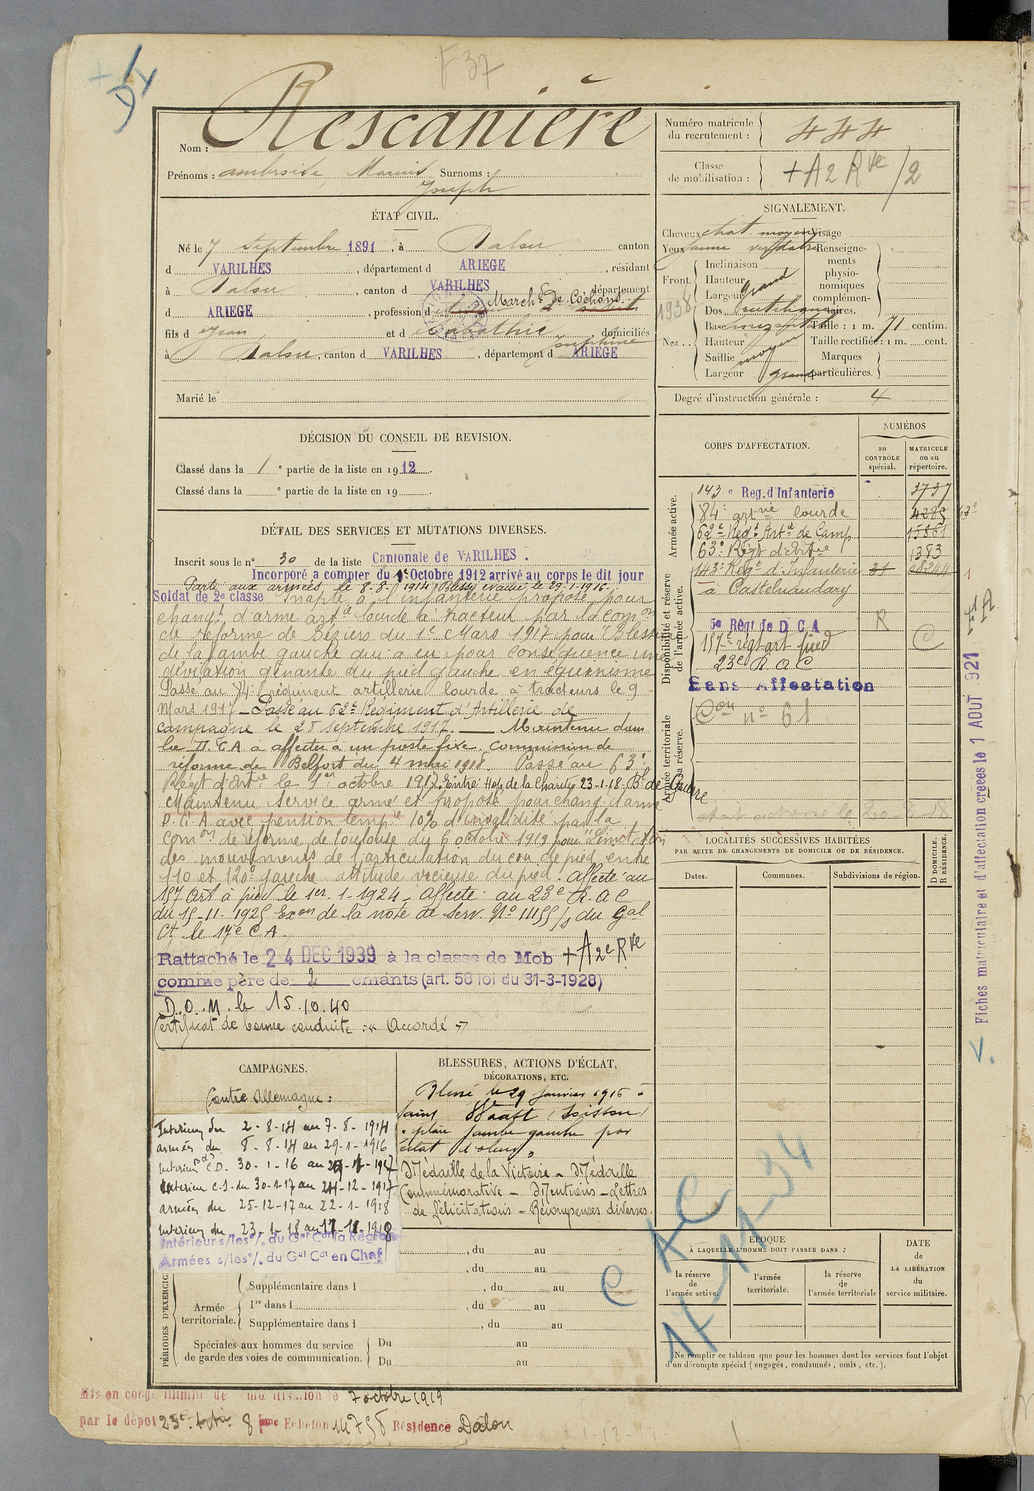 F 37
Nom : Rescanière
Prénoms : ambroise Marius Surnoms :
Joseph
ÉTAT CIVIL.
Né le 7 septembre 1891, à Dalou canton
d VARILHES, département d ARIEGE, résidant
à Dalou, canton d VARILHES département
d ARIEGE, profession d March de Cochons
fils d Jean et d domiciliés
Joséphine
à Dalou, canton d VARILHES, département d ARIEGE
Marié le
DÉCISION DU CONSEIL DE REVISION.
Classé dans la 1e partie de la liste en 1912.
Classé dans la e partie de la liste en 19
DÉTAIL DES SERVICES ET MUTATIONS DIVERSES.
Inscrit sous le n° 30 de la liste Cantonale de VARILHES.
Incorporé a compter du 1er Octobre 1912 arrivé au corps le dit jour
Parti aux armées le 8-8-1914 Blessé évacué le 29-1-1916
Soldat de 2e classe Inapte à l'infanterie proposé pour
changt d'arme artie lourde à tracteur par la comon
de réforme de Béziers du 1er Mars 1917 pour
de la jambe gauche qui a eu pour conséquence une
déviation gênante du pied gauche en équinisme
Passé au 84e régiment artillerie lourde à tracteurs le 9
Mars 1917 - Passé au 62e Régiment d'Artillerie de
campagne le 28 septembre 1917. — Maintenu dans
la D.C.A à affecter à un poste fixe. Commission de
réforme de Belfort du 4 mai 1918. Passé au 63e
Régt d'Artie le 1er octobre 1917. Entré Hop. de la Charité 23-1-18. Bt de Guerre
Maintenu service armé et proposé pour changt d'arme
D.C.A avec pension tempre 10% d'invalidité par la
Comon de réforme de Toulouse du 6 octobre 1919 pour "Limitation
des mouvements de l'articulation du cou de pied entre
110 et 120° gauche attitude vicieuse du pied. Affecté au
157 Art à pied le 1er-1-1924 - Affecté au 23e R.A.C
du 15-11-1925 Exon de la note de Serv. N° 11155/ du Gal
Ct le 17e C.A.
Rattaché le 24 DEC 1939 à la classe de Mob + A2e Rve
comme père de 2 enfants (art. 58 loi du 31-3-1928)
D.O.M. le 15.10.40
Certificat de bonne conduite : « Accordé »
CAMPAGNES.
Contre Allemagne :
Intérieur du 2-8-14 au 7-8-1914
armées du 8-8-14 au 29-1-1916
Intérieur C.D. 30-1-16 au 1917
Intérieur C.S. du 30-1-17 au 24-12-1917
armées du 25-12-17 au 22-1-1918
Intérieur du 23-1-18 au 11-11-1918
Intérieur s/les o/. du Gal Cdt la Région
Armées s/les o/. du Gal Cdt en Chef
BLESSURES, ACTIONS D'ÉCLAT,
DÉCORATIONS, ETC.
Blessé le 29 janvier 1916 à
Saint Waast (Soissons)
plaie jambe gauche par
éclat d'obus.
Médaille de la Victoire - Médaille
Commémorative - Mentions - Lettres
de félicitations - Récompenses diverses.
, du au
, du au
PÉRIODES D'EXERCICES
Armée territoriale.
Supplémentaire dans l , du au
1re dans l , du au
Supplémentaire dans l , du au
Spéciales aux hommes du service
de garde des voies de communication.
Du au
Du au
Mis en congé illimité de démobilisation le 7 octobre 1919
par le dépôt 23e 8 ème Echelon N° 758 Résidence Dalou
Numéro matricule
du recrutement : 444
Classe
de mobilisation : + A2 Rve/2
SIGNALEMENT.
Cheveux chat. moyen Visage
Yeux jaune verdâtre Renseignements
physionomiques
complémentaires.
Front
Inclinaison
Hauteur grand
Largeur
Nez
Dos
Base
Hauteur
Saillie moyen
Largeur grand
1938
Taille : 1 m. 71 centim.
Taille rectifiée : 1 m. cent.
Marques
particulières.
Degré d'instruction générale : 4
CORPS D'AFFECTATION.
NUMÉROS
au
CONTRÔLE
spécial.
MATRICULE
ou au
répertoire.
Armée active.
143e Reg. d'Infanterie 3737
84e artrie lourde 4285
62e Régt Artie de Camp
63e Régt d'Artie 1383
Disponibilité et réserve de l'armée active.
143e Régt d'Infanterie
à Castelnaudary
5e Régt de D C A R
157e régt art pied C
23e R A C
Sans Affectation
Armée territoriale et sa réserve.
Con n° 61
LOCALITÉS SUCCESSIVES HABITÉES
PAR SUITE DE CHANGEMENTS DE DOMICILE OU DE RÉSIDENCE.
Dates. Communes. Subdivisions de région.
D DOMICILE.
R RÉSIDENCE.
ÉPOQUE
À LAQUELLE L'HOMME DOIT PASSER DANS :
DATE
DE
LA LIBÉRATION
du
service militaire.
la réserve
de
l'armée active.
l'armée
territoriale.
la réserve
de
l'armée territoriale
Ne remplir ce tableau que pour les hommes dont les services font l'objet
d'un décompte spécial (engagés, condamnés, omis, etc.).
C A C
17-11-34
V. Fiches matriculaire et d'affectation créées le 1 AOUT 921